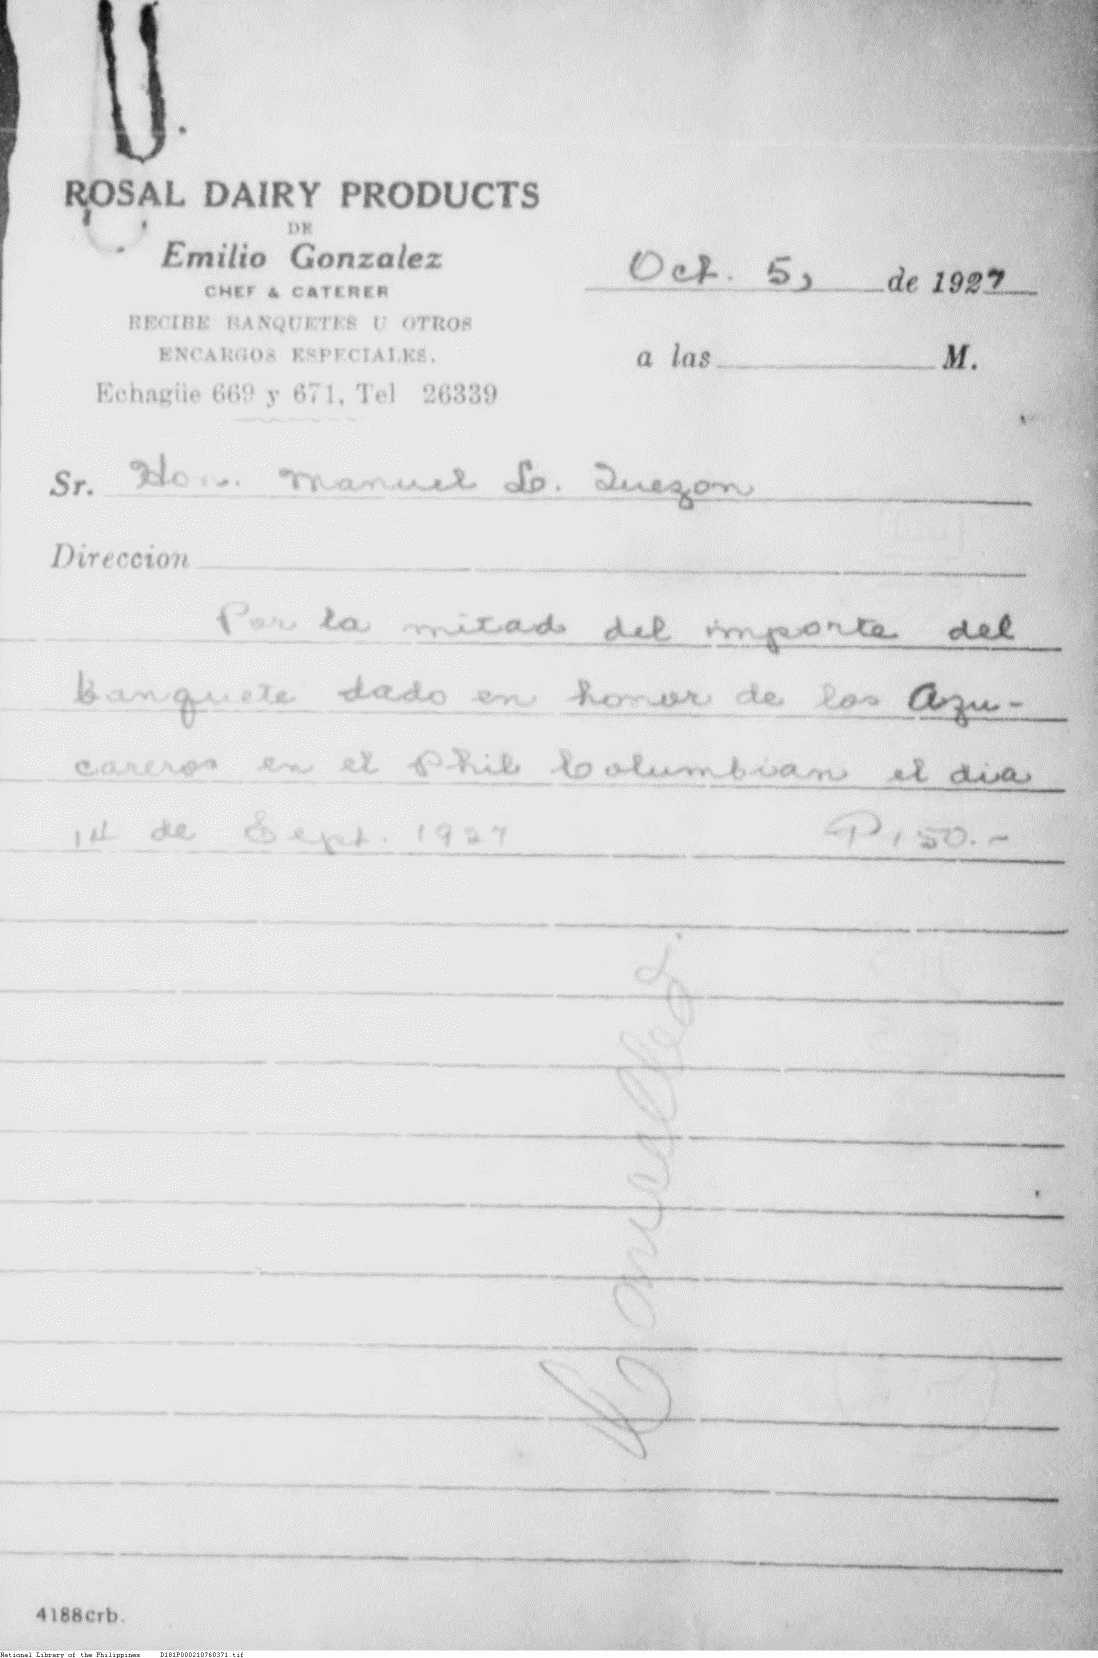 ROSAL DAIRY PRODUCTS
DE
Emilio Gonzalez
CHEF & CATERER
RECIBE BANQUETES U OTROS
ENCARGOS ESPECIALES.
Echagüe 669 y 671, Tel 26339
Oct. 5, de 1927
a las M.
Sr. Hon. Manuel L. Quezon
Direccion
Por la mitad del importe del
banquete dado en honor de los Azu-
careros en el Phil Columbian el dia
14 de Sept. 1927 ₱150.-
Cancelled.
4188crb.
National Library of the Philippines D181P000210760371.tif